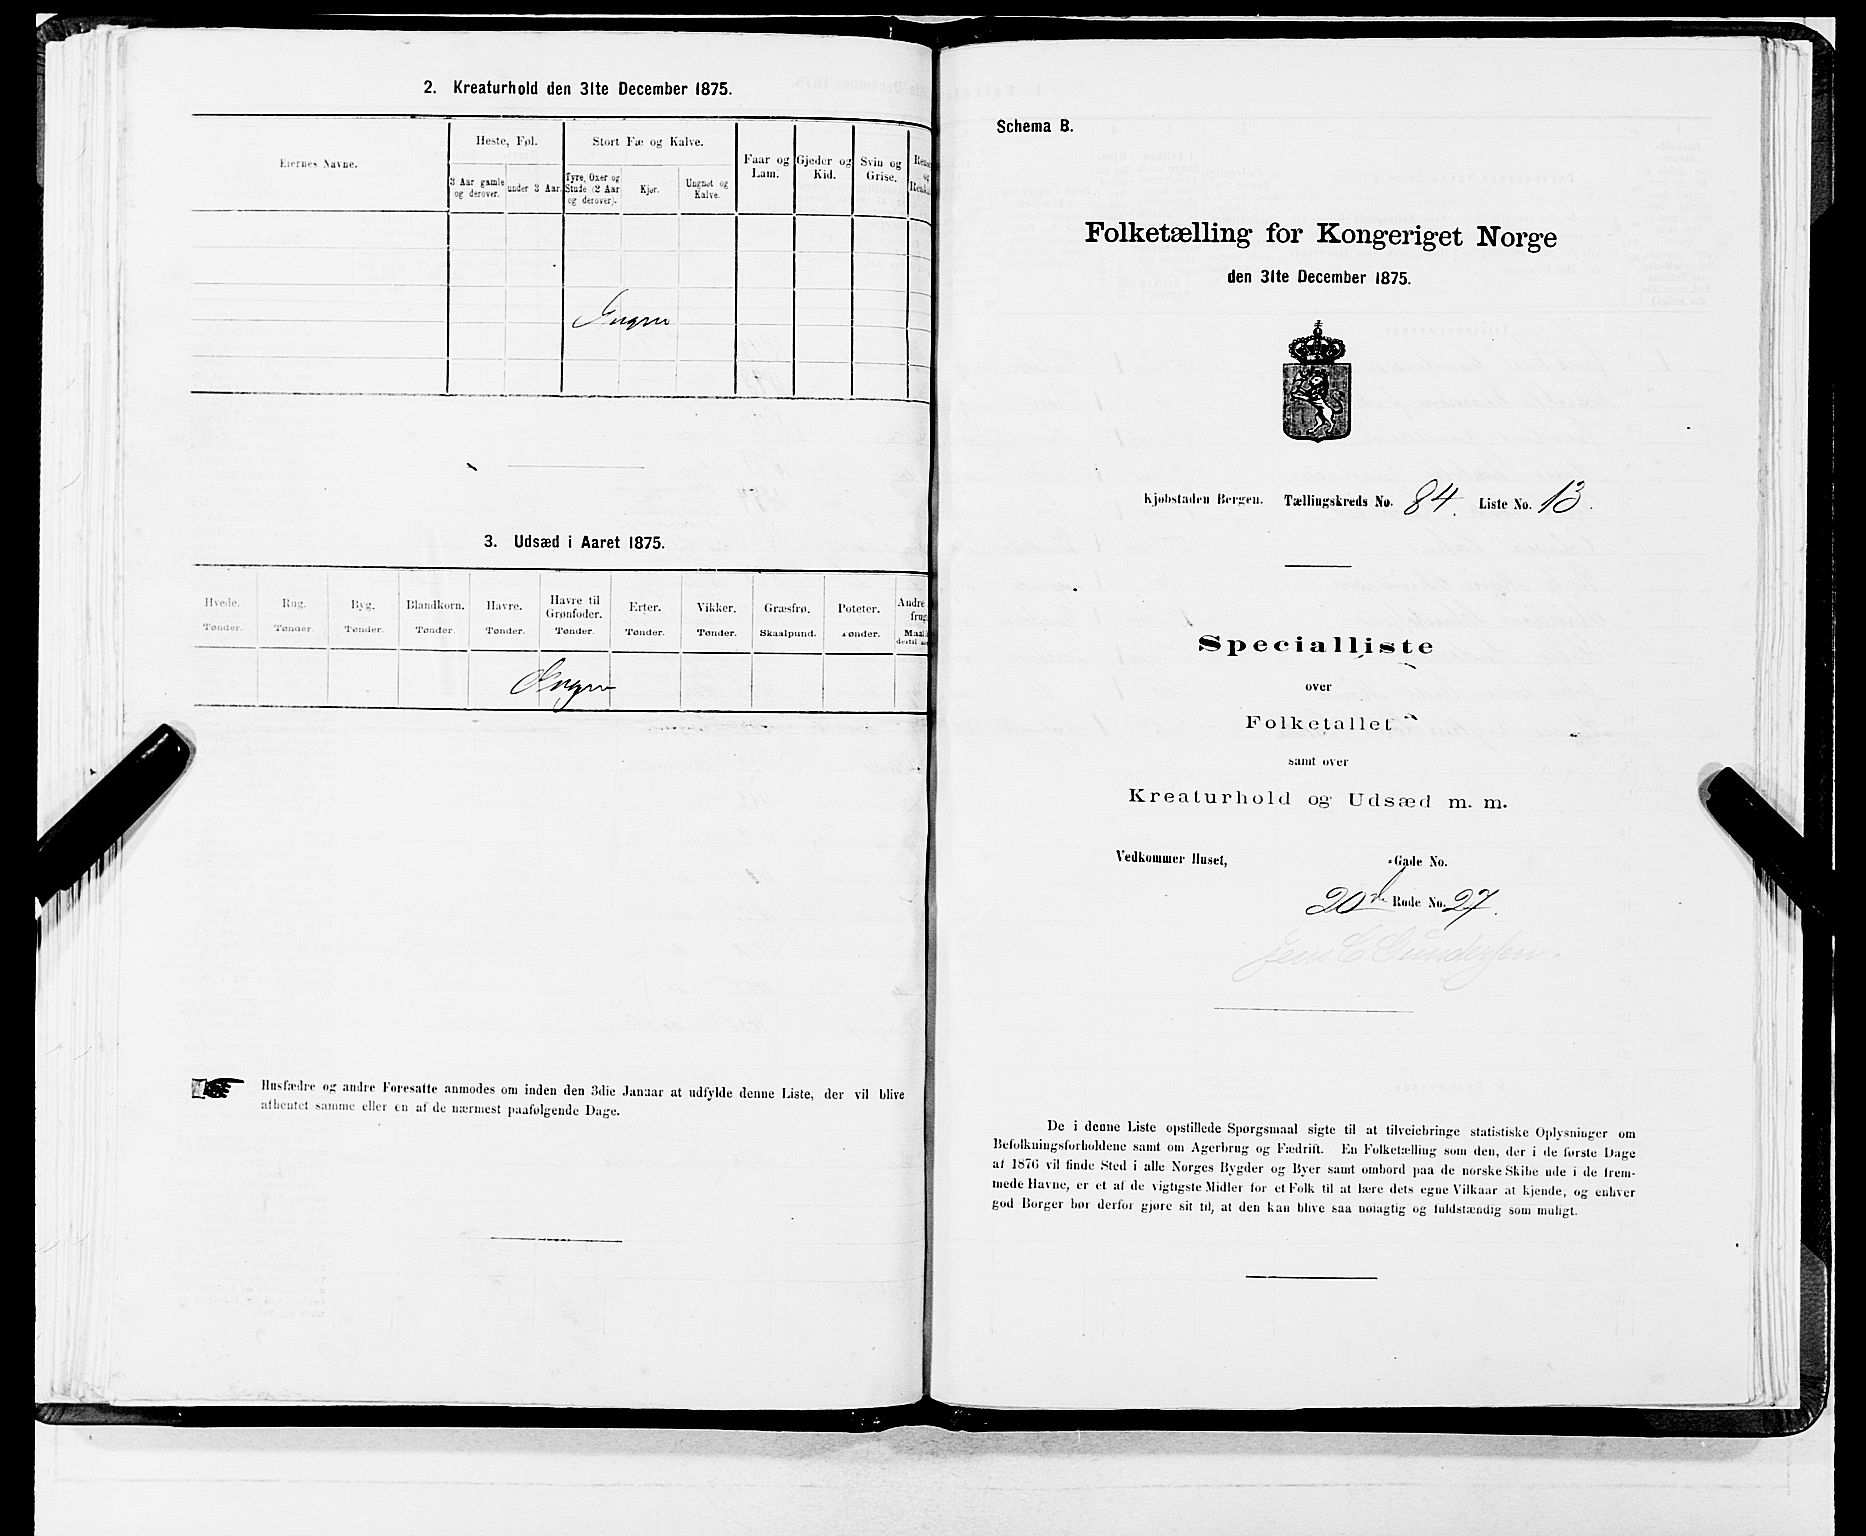 2. Kreaturhold den 31te December 1875.
Eiernes Navne.
Heste, Føl.
3 Aar gamle og derover.
under 3 Aar.
Stort Fæ og Kalve.
Tyre, Oxer og Stude (2 Aar og derover).
Kjør.
Ungnøt og Kalve.
Faar og Lam.
Gjeder og Kid.
Svin og Grise.
og
Ingen
3. Udsæd i Aaret 1875.
Hvede. Rug. Byg. Blandkorn. Havre. Havre til Grønfoder. Erter. Vikker. Græsfrø. Poteter. Andre
Tønder. Tønder. Tønder. Tønder. Tønder. Tønder. Tønder. Tønder. Skaalpund. Tønder.
Ingen
Husfædre og andre Foresatte anmodes om inden den 3die Januar at udfylde denne Liste, der vil blive
afhentet samme eller en af de nærmest paafølgende Dage.
Schema B.
Folketælling for Kongeriget Norge
den 31te December 1875.
Kjøbstaden Bergen. Tællingskreds No. 84. Liste No. 13.
Specialliste
over
Folketallet
samt over
Kreaturhold og Udsæd m. m.
Vedkommer Huset, Gade No.
20de Rode No. 27.
Jens C Gundersen.
De i denne Liste opstillede Spørgsmaal sigte til at tilveiebringe statistiske Oplysninger om
Befolkningsforholdene samt om Agerbrug og Fædrift. En Folketælling som den, der i de første Dage
af 1876 vil finde Sted i alle Norges Bygder og Byer samt ombord paa de norske Skibe ude i de frem-
mede Havne, er et af de vigtigste Midler for et Folk til at lære dets egne Vilkaar at kjende, og enhver
god Borger bør derfor gjøre sit til, at den kan blive saa nøiagtig og fuldstændig som muligt.